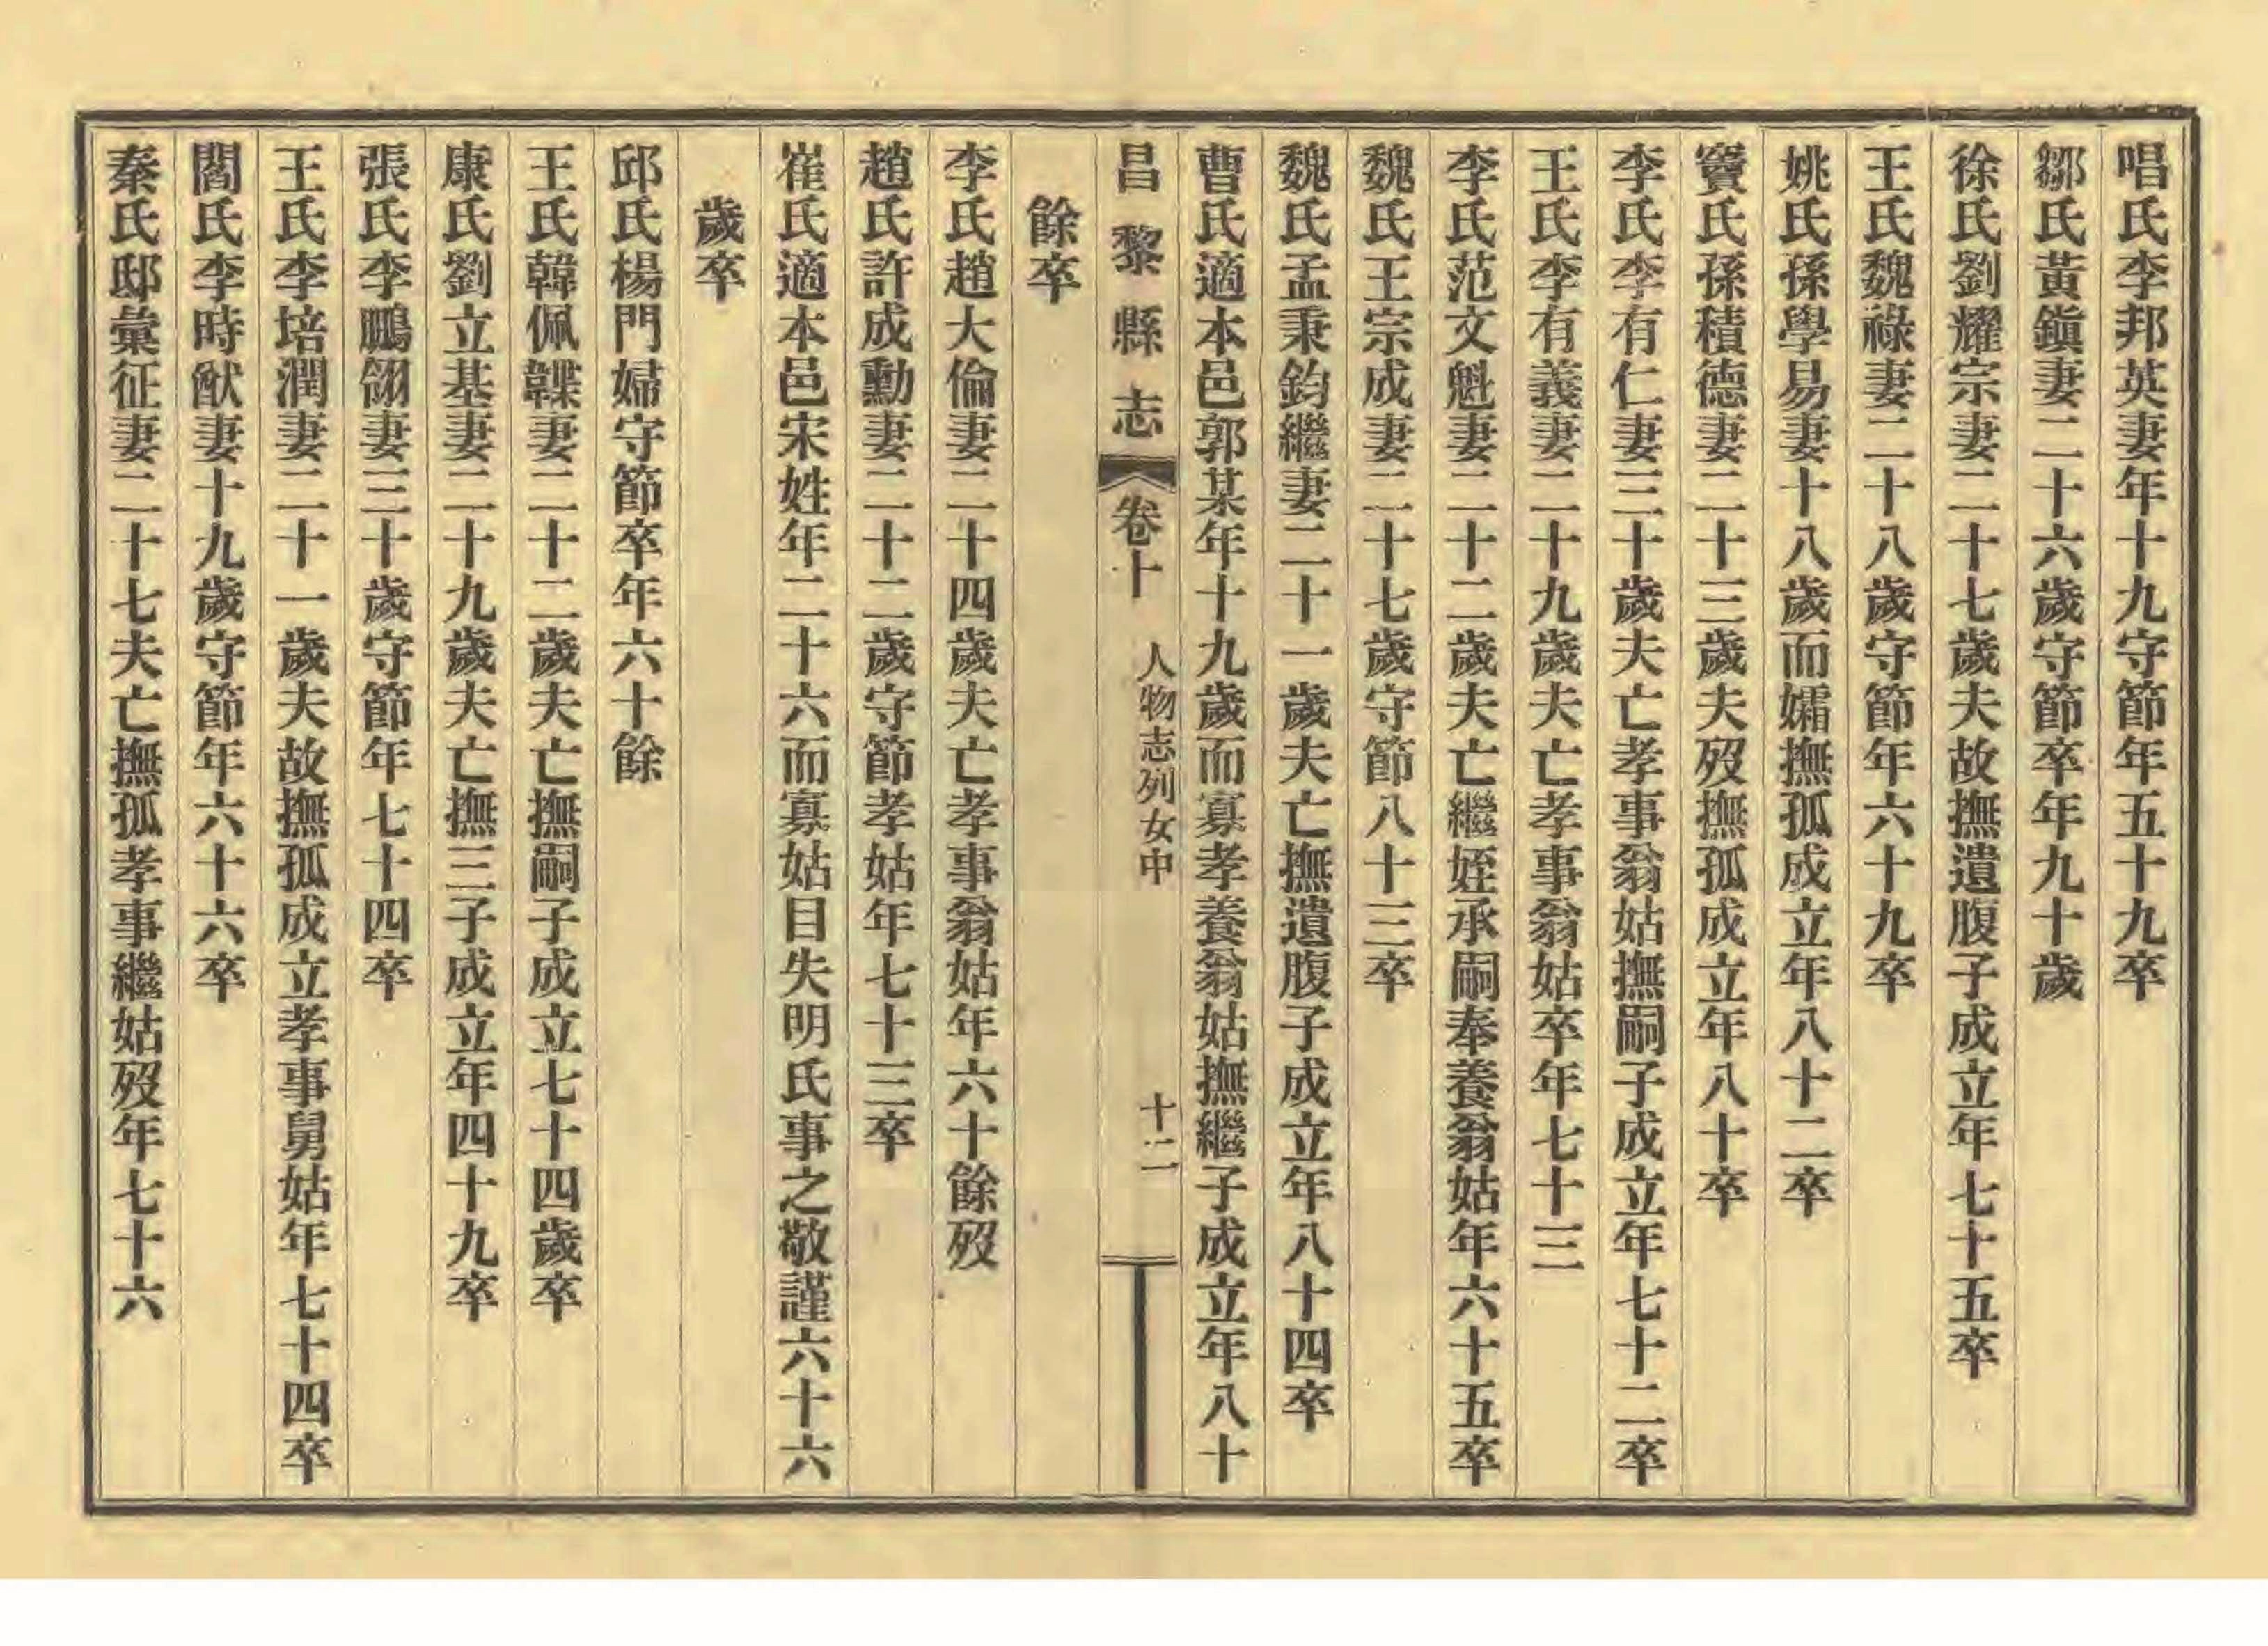 唱氏李邦英妻年十九守節年五十九卒
鄒氏黃鎭妻二十六歲守節卒年九十歲
徐氏劉耀宗妻二十七歲夫故撫遺腹子成立年七十五卒
王氏魏祿妻二十八歲守節年六十九卒
姚氏孫學易妻十八歲而孀撫孤成立年八十二卒
竇氏孫積德妻二十三歲夫歿撫孤成立年八十卒
李氏李有仁妻三十歲夫亡孝事翁姑撫嗣子成立年七十二卒
王氏李有義妻二十九歲夫亡孝事翁姑卒年七十三
李氏范文魁妻二十二歲夫亡繼姪承嗣奉養翁姑年六十五卒
魏氏王宗成妻二十七歲守節八十三卒
魏氏孟秉鈞繼妻二十一歲夫亡撫遺腹子成立年八十四卒
曹氏適本邑郭某年十九歲而寡孝養翁姑撫繼子成立年八十
昌黎縣志 卷十 人物志列女中 十二
餘卒
李氏趙大倫妻二十四歲夫亡孝事翁姑年六十餘歿
趙氏許成勳妻二十二歲守節孝姑年七十三卒
崔氏適本邑宋姓年二十六而寡姑目失明氏事之敬謹六十六
歲卒
邱氏楊門婦守節卒年六十餘
王氏韓佩韘妻二十二歲夫亡撫嗣子成立七十四歲卒
康氏劉立基妻二十九歲夫亡撫三子成立年四十九卒
張氏李鵬翎妻三十歲守節年七十四卒
王氏李培潤妻二十一歲夫故撫孤成立孝事舅姑年七十四卒
閻氏李時猷妻十九歲守節年六十六卒
秦氏邸彙征妻二十七夫亡撫孤孝事繼姑歿年七十六